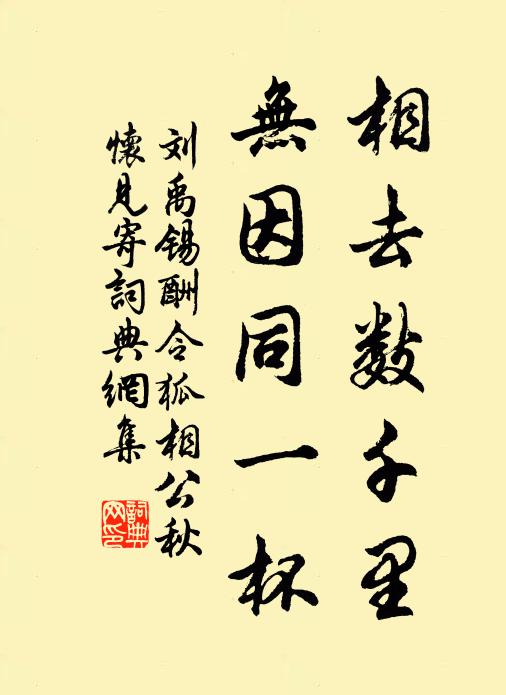 相去数千里
無因同一杯
刘禹锡酬令狐相公秋
懷見寄詞典網集
詞典网印